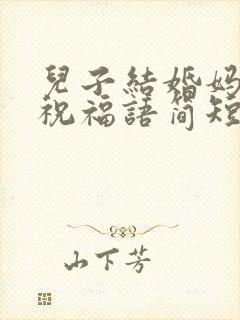 兒子結婚媽
祝福語简短
山下芳